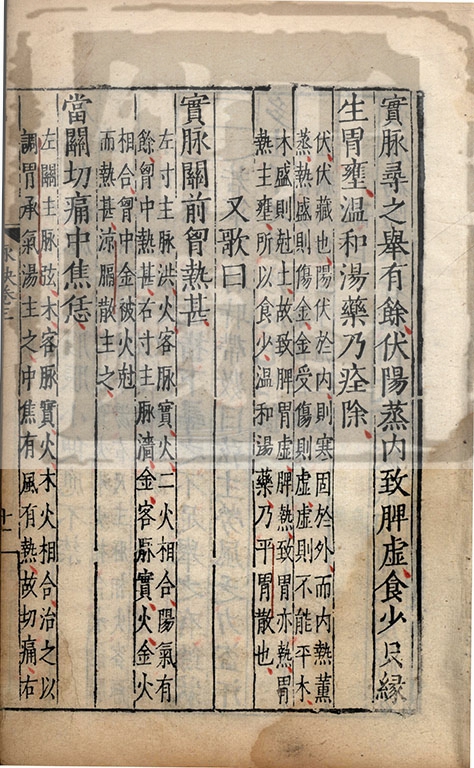 實脉尋之舉有餘伏陽蒸内致脾虚食少只緣
生胃壅温和湯藥乃痊除
伏伏藏也陽伏於内則寒固於外而内熱薰
蒸熱盛則傷金金受傷則虚虚則不能平木
木盛則尅土故致脾胃虚脾熱致胃亦熱胃
熱主壅所以食少温和湯藥乃平胃散也
又歌曰
實脉關前胷熱甚
左寸主脉洪火客脉實火二火相合陽氣有
餘胷中熱甚右寸主脉濇金客脉實火金火
相合胷中金被火尅
而熱甚凉膈散主之
當關切痛中焦恁
左關主脉弦木客脉實火木火相合治之以
調胃承氣湯主之中焦有風有熱故切痛右
脉訣卷三
十一